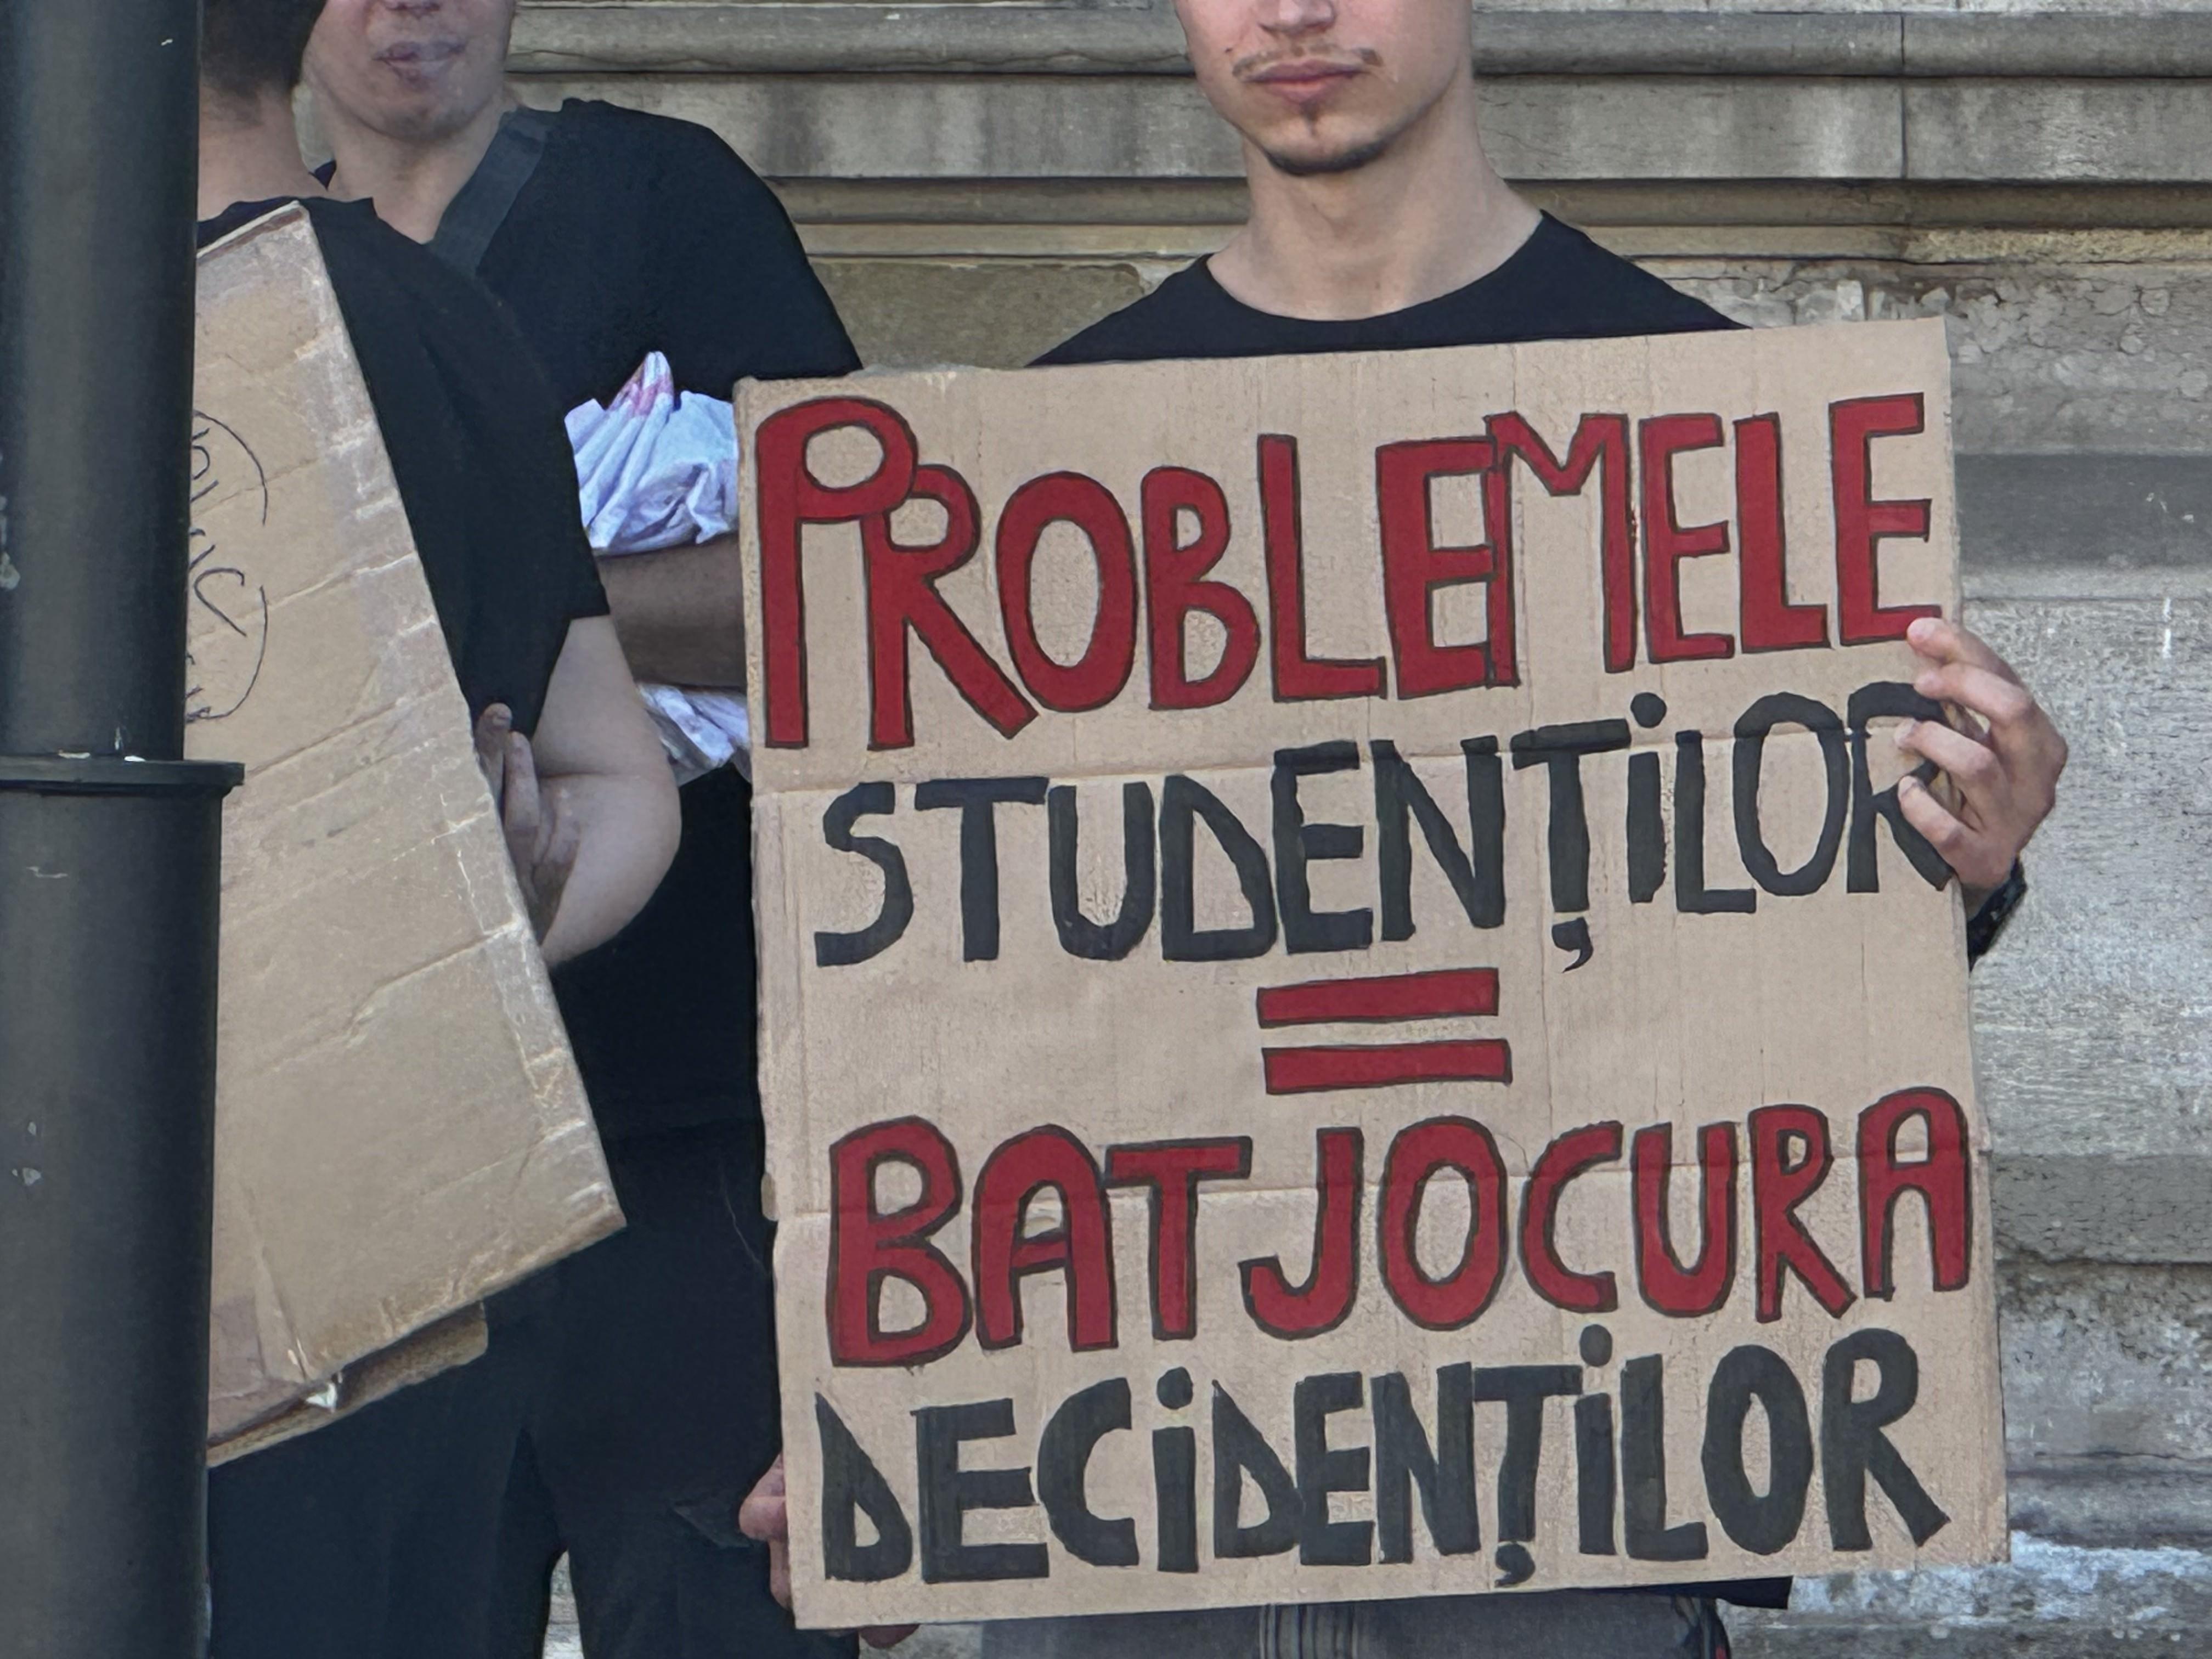 PROBLEMELE
STUDENȚILOR
=
BATJOCURA
DECIDENȚILOR